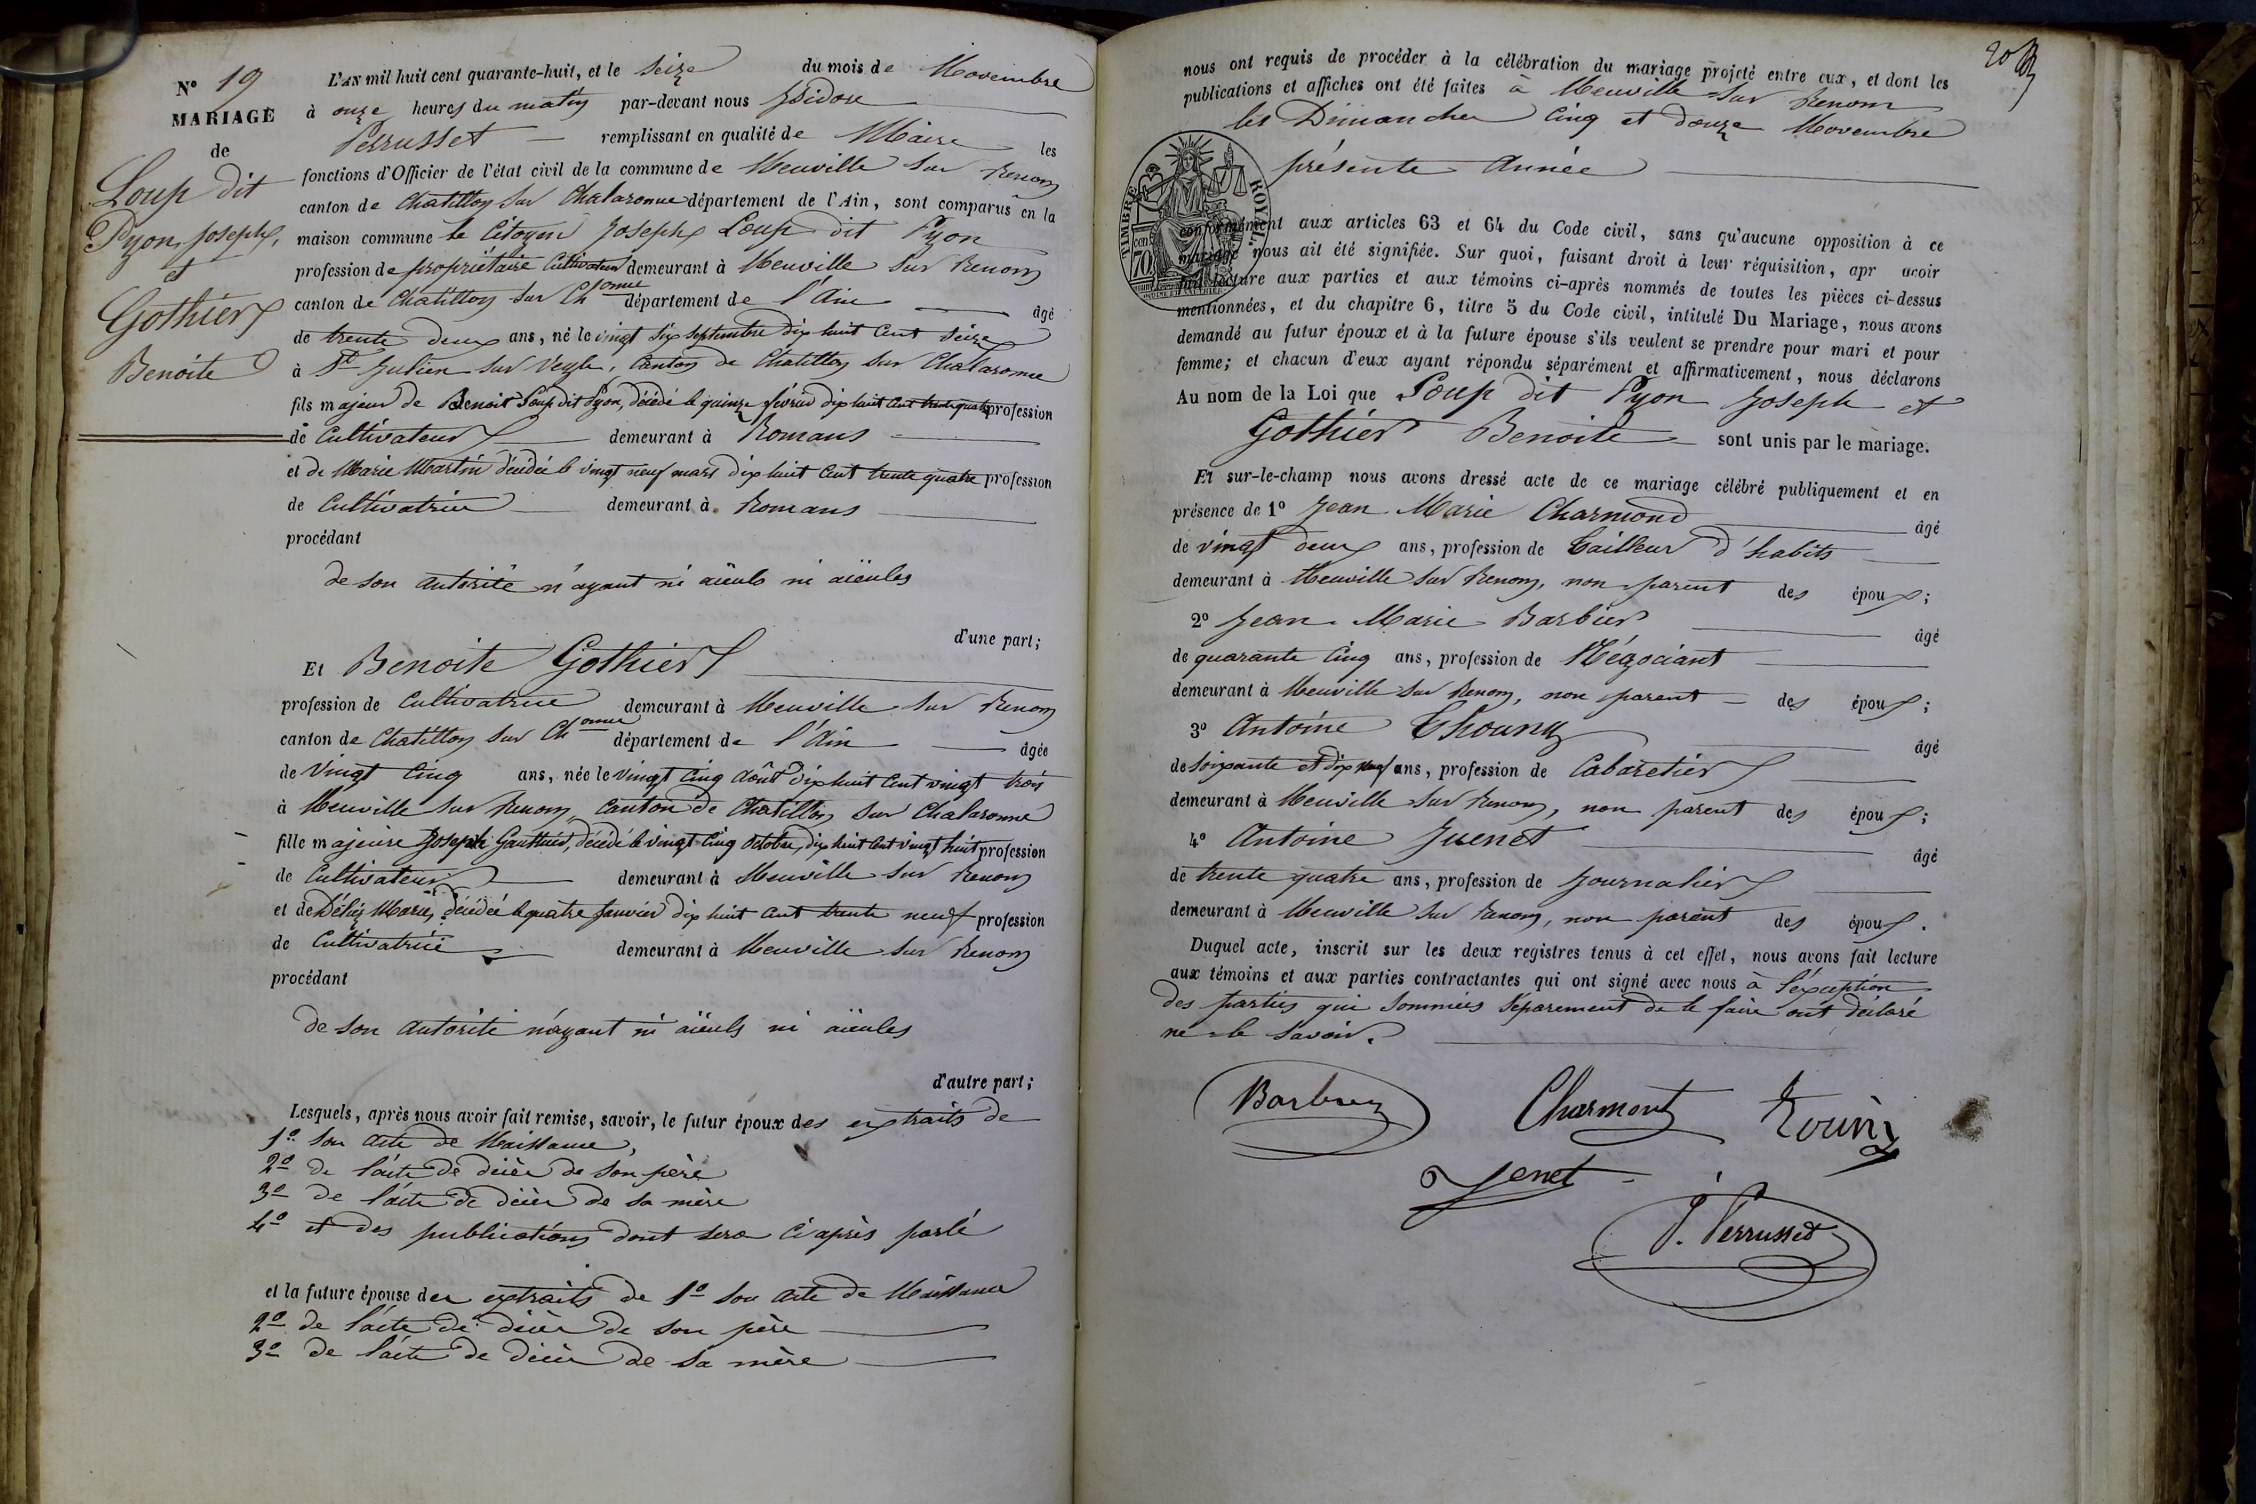 N° 19
MARIAGE
de
Loup dit
Pyon, Joseph,
et
Gothier
Benoite
L'AN mil huit cent quarante-huit, et le seize du mois de Novembre
à onze heures du matin par-devant nous Isidore
Perrusset remplissant en qualité de Maire les
fonctions d'Officier de l'état civil de la commune de Neuville sur Renom
canton de Chatillon sur Chalaronne département de l'Ain, sont comparus en la
maison commune le Citoyen Joseph Loup dit Pyon
profession de propriétaire Cultivateur demeurant à Neuville sur Renom
canton de Chatillon sur Chonne département de l'Ain âgé
de trente deux ans, né le vingt six septembre dix huit cent seize
à St Julien sur Veyle, Canton de Chatillon sur Chalaronne
fils majeur de Benoit Loup dit Pyon, décédé le quinze février dix huit cent trente quatre profession
de Cultivateur demeurant à Romans
et de Marie Martin décédée le vingt neuf mars dix huit cent trente quatre profession
de Cultivatrice demeurant à Romans
procédant
de son autorité n'ayant ni aïeuls ni aïeules
d'une part;
Et Benoite Gothier
profession de Cultivatrice demeurant à Neuville sur Renom
canton de Chatillon sur Chonne département de l'Ain âgée
de vingt cinq ans, née le vingt cinq août dix huit cent vingt trois
à Neuville sur Renom, canton de Chatillon sur Chalaronne
fille majeure Joseph Gauthier, décédé le vingt cinq octobre, dix huit cent vingt huit profession
de Cultivateur demeurant à Neuville sur Renom
et de Marie, décédée le quatre Janvier dix huit cent trente neuf profession
de Cultivatrice demeurant à Neuville sur Renom
procédant
de son autorité n'ayant ni aïeuls ni aïeules
d'autre part;
Lesquels, après nous avoir fait remise, savoir, le futur époux des extraits de
1° son acte de Naissance,
2° de l'acte de décès de son père
3° de l'acte de décès de sa mère
4° et des publications dont sera ci après parlé
et la future épouse des extraits de 1° son acte de Naissance
2° de l'acte de décès de son père
3° de l'acte de décès de sa mère
20
nous ont requis de procéder à la célébration du mariage projeté entre eux, et dont les
publications et affiches ont été faites à Neuville sur Renom
les Dimanches cinq et douze Novembre
présente année
TIMBRE ROYAL.
70
conformément aux articles 63 et 64 du Code civil, sans qu'aucune opposition à ce
mariage nous ait été signifiée. Sur quoi, faisant droit à leur réquisition, apr avoir
fait lecture aux parties et aux témoins ci-après nommés de toutes les pièces ci-dessus
mentionnées, et du chapitre 6, titre 5 du Code civil, intitulé Du Mariage, nous avons
demandé au futur époux et à la future épouse s'ils veulent se prendre pour mari et pour
femme; et chacun d'eux ayant répondu séparément et affirmativement, nous déclarons
Au nom de la Loi que Loup dit Pyon Joseph et
Gothier Benoite sont unis par le mariage.
Et sur-le-champ nous avons dressé acte de ce mariage célébré publiquement et en
présence de 1° Jean Marie Charmond âgé
de vingt deux ans, profession de Tailleur d'habits
demeurant à Neuville sur Renom, non parent des époux;
2° Jean Marie Barbier âgé
de quarante cinq ans, profession de Négociant
demeurant à Neuville sur Renom, non parent des époux;
3° Antoine âgé
de soixante et dix neuf ans, profession de Cabaretier
demeurant à Neuville sur Renom, non parent des époux;
4° Antoine Juenet âgé
de trente quatre ans, profession de Journalier
demeurant à Neuville sur Renom, non parent des époux.
Duquel acte, inscrit sur les deux registres tenus à cet effet, nous avons fait lecture
aux témoins et aux parties contractantes qui ont signé avec nous à l'éxception
des parties qui sommées séparement de le faire ont déclaré
ne le savoir.
Barbier Charmont
Jenet
I. Perrusset